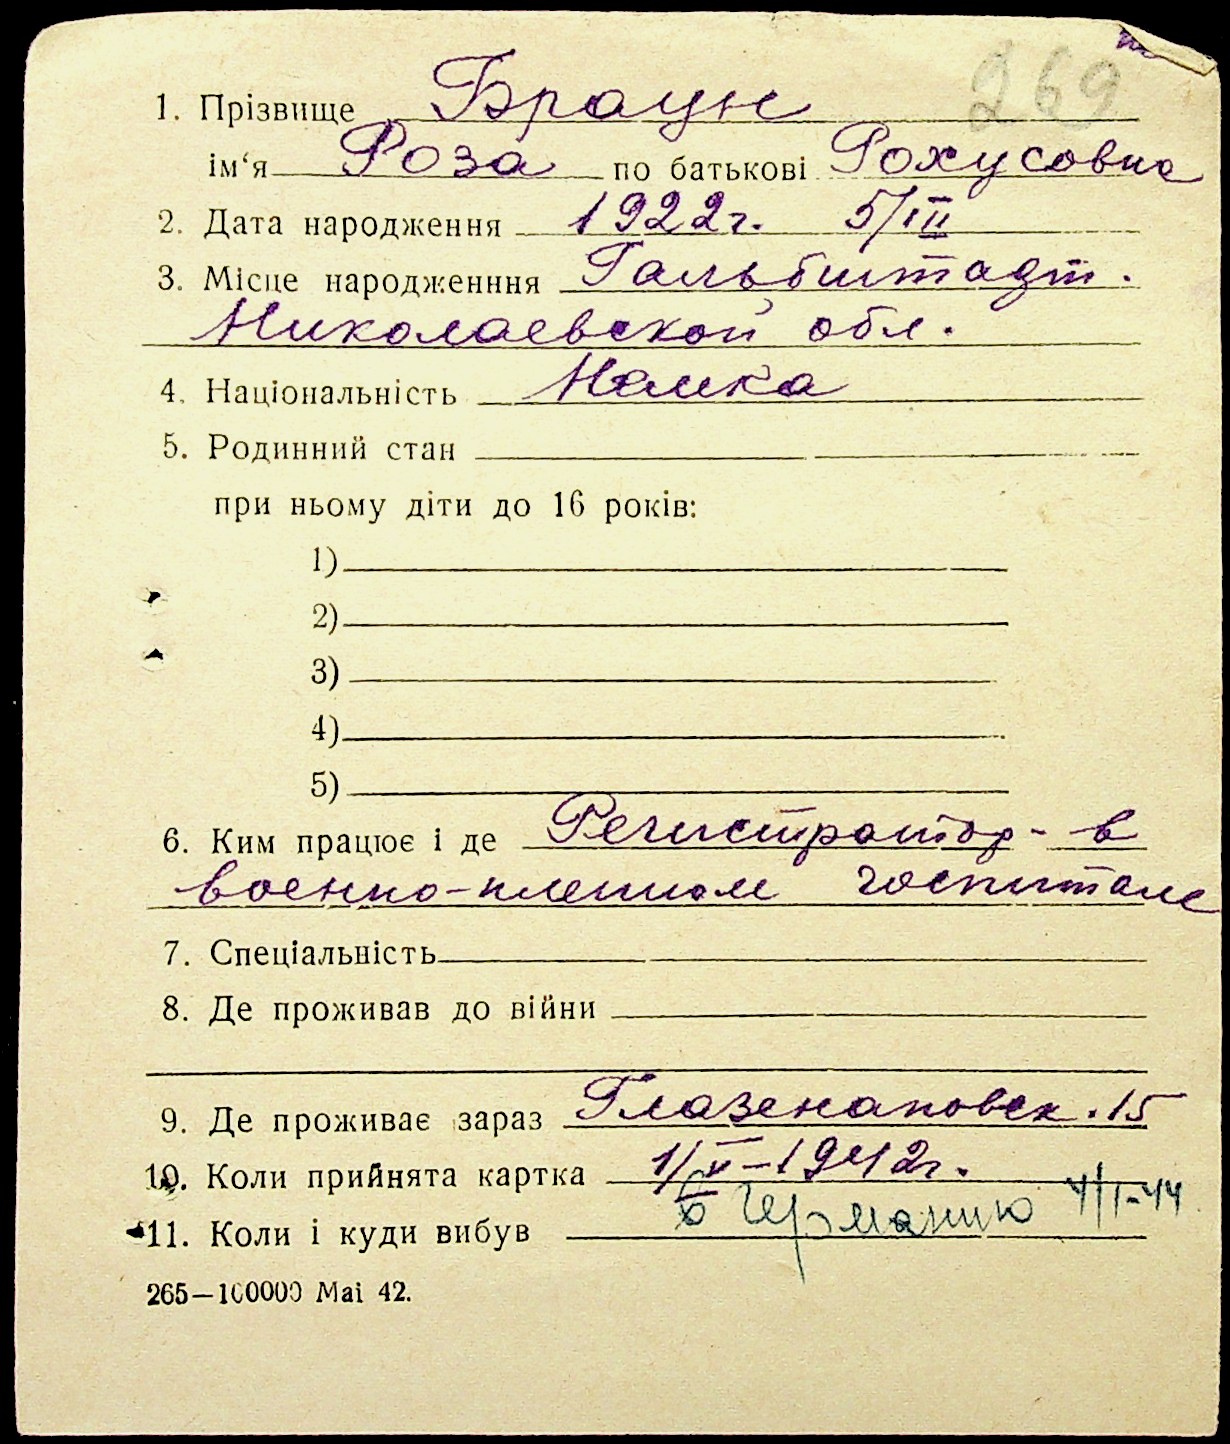 269
1. Прізвище Браун
ім‘я Роза по батькові Рохусовна
2. Дата народження 1922г. 5/III
3. Місце народженння Гальбштадт.
Николаевской обл.
4. Національність Немка
5. Родинний стан
при ньому діти до 16 років:
1)
2)
3)
4)
5)
6. Ким працює і де Регистратор - в
военно-пленном госпитале
7. Спеціальність
8. Де проживав до війни
9. Де проживає зараз Глазенаповск. 15
10. Коли прийнята картка 1/V-1942г.
11. Коли і куди вибув в Германию 4/I-44
265—100000 Mai 42.